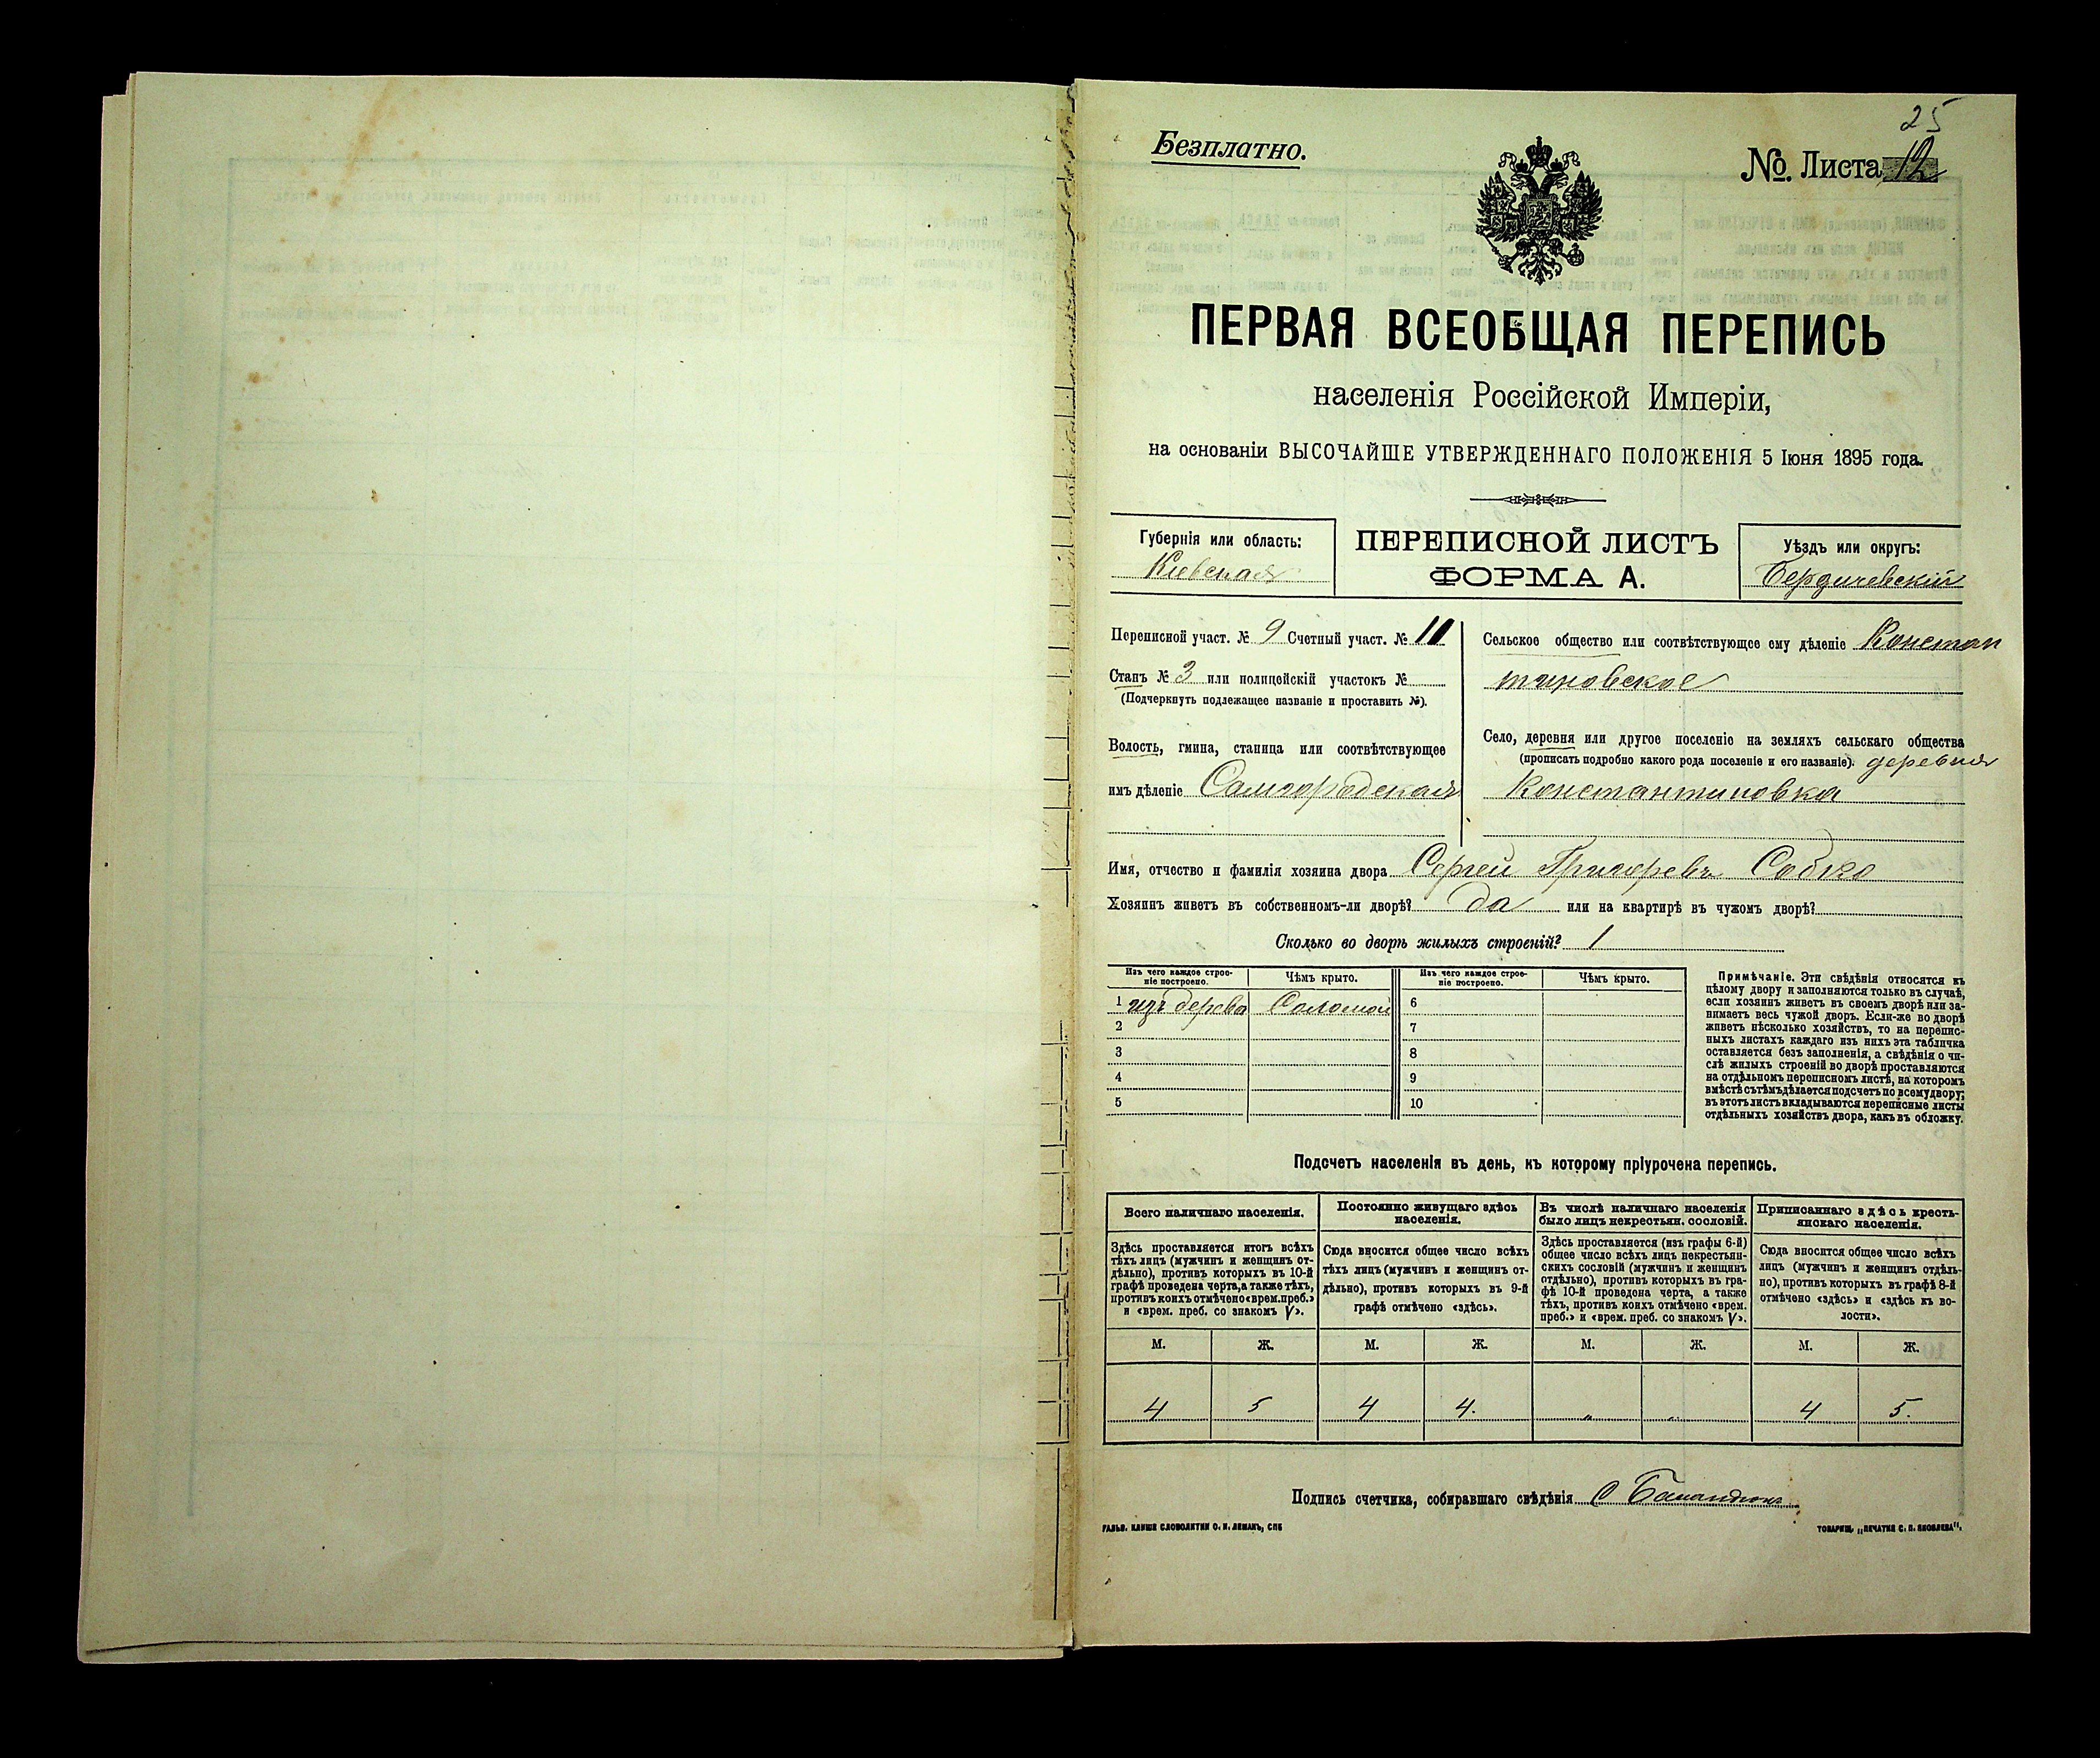 25
Безплатно.
№. Листа 12
ПЕРВАЯ ВСЕОБЩАЯ ПЕРЕПИСЬ
населенія Россійской Имперіи,
на основаніи ВЫСОЧАЙШЕ УТВЕРЖДЕННАГО ПОЛОЖЕНІЯ 5 Іюня 1895 года.
Губернія или область:
Кіевская
ПЕРЕПИСНОЙ ЛИСТЪ
ФОРМА А.
Уѣздъ или округъ:
Бердичевскій
Переписной участ. № 9 Счетный участ. № 11
Станъ № 3 или полицейскій участокъ №
(Подчеркнуть подлежащее названіе и проставить №).
Волость, гмина, станица или соотвѣтствующее
имъ дѣленіе Самгородская
Сельское общество или соотвѣтствующее ему дѣленіе Констан
тиновское
Село, деревня или другое поселеніе на земляхъ сельскаго общества
(прописать подробно какого рода поселеніе и его названіе). деревня
Константиновка
Имя, отчество и фамилія хозяина двора Сергей Григорьевъ Собко
Хозяинъ живетъ въ собственномъ-ли дворѣ? да или на квартирѣ въ чужомъ дворѣ?
Сколько во дворѣ жилыхъ строеній? 1
Изъ чего каждое строе-
ніе построено.
Чѣмъ крыто.
Изъ чего каждое строе-
ніе построено.
Чѣмъ крыто.
1 изъ дерева Соломой 6
2 7
3 8
4 9
5 10
Примѣчаніе. Эти свѣдѣнія относятся къ
цѣлому двору и заполняются только въ случаѣ,
если хозяинъ живетъ въ своемъ дворѣ или за-
нимаетъ весь чужой дворъ. Если-же во дворѣ
живетъ нѣсколько хозяйствъ, то на перепис-
ныхъ листахъ каждаго изъ нихъ эта табличка
оставляется безъ заполненія, а свѣдѣнія о чи-
слѣ жилыхъ строеній во дворѣ проставляются
на отдѣльномъ переписномъ листѣ, на которомъ
вмѣстѣ съ тѣмъ дѣлается подсчетъ по всему двору;
въ этотъ листъ вкладываются переписные листы
отдѣльныхъ хозяйствъ двора, какъ въ обложку.
Подсчетъ населенія въ день, къ которому пріурочена перепись.
Всего наличнаго населенія.
Здѣсь проставляется итогъ всѣхъ
тѣхъ лицъ (мужчинъ и женщинъ от-
дѣльно), противъ которыхъ въ 10-й
графѣ проведена черта, а также тѣхъ,
противъ коихъ отмѣчено «врем. преб.»
и «врем. преб. со знакомъ V».
Постоянно живущаго здѣсь
населенія.
Сюда вносится общее число всѣхъ
тѣхъ лицъ (мужчинъ и женщинъ от-
дѣльно), противъ которыхъ въ 9-й
графѣ отмѣчено «здѣсь».
Въ числѣ наличнаго населенія
было лицъ некрестьян. сословій.
Здѣсь проставляется (изъ графы 6-й)
общее число всѣхъ лицъ некрестьян-
скихъ сословій (мужчинъ и женщинъ
отдѣльно), противъ которыхъ въ гра-
фѣ 10-й проведена черта, а также
тѣхъ, противъ коихъ отмѣчено «врем.
преб.» и «врем. преб. со знакомъ V».
Приписаннаго здѣсь кресть-
янскаго населенія.
Сюда вносится общее число всѣхъ
лицъ (мужчинъ и женщинъ отдѣль-
но), противъ которыхъ въ графѣ 8-й
отмѣчено «здѣсь» и «здѣсь къ во-
лости».
М. Ж. М. Ж. М. Ж. М. Ж.
4 5 4 4. „ „ 4 5.
Подпись счетчика, собиравшаго свѣдѣнія
ГАЛЬВ. КЛИШЕ СЛОВОЛИТНИ О. И. ЛЕМАНЪ, СПБ
ТОВАРИЩ. „ПЕЧАТНЯ С. П. ЯКОВЛЕВА".